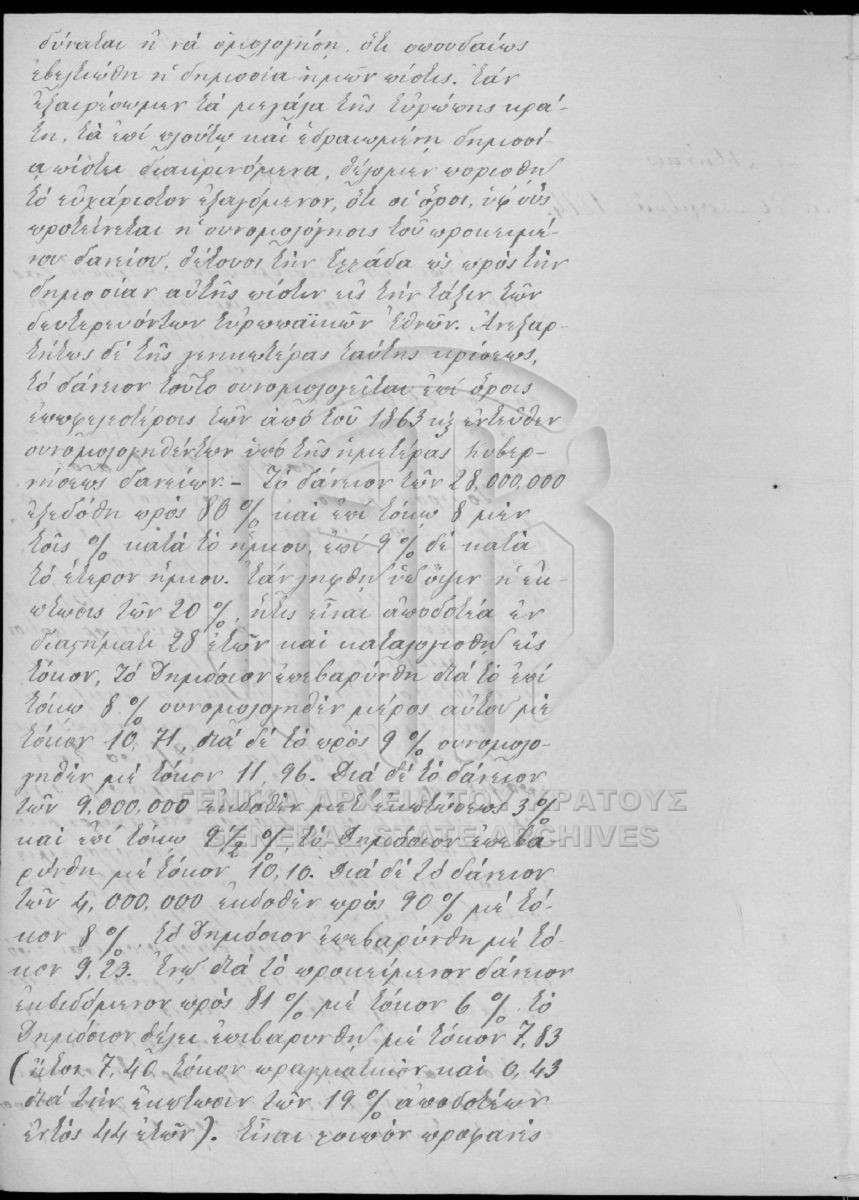 δύναται ἢ νά ὁμολογήσῃ, ὅτι σπουδαίως
ἐβελτιώθη ἡ δημοσία ἡμῶν πίστις. Ἐάν
ἐξαιρέσωμεν τά μεγάλα τῆς Εὐρώπης κρά-
τη, τά ἐπί πλούτῳ καί ἑδραιωμένῃ δημοσί-
ᾳ πίστει διακρινόμενα, θέλομεν πορισθῆ
τό εὐχάριστον ἐξαγόμενον, ὅτι οἱ ὅροι, ὑφ' οὕς
προτείνεται ἡ συνομολόγησις τοῦ προκειμέ-
νου δανείου, θέτουσι τήν Ἑλλάδα ὡς πρός τήν
δημοσίαν αὐτῆς πίστιν εἰς τήν τάξιν τῶν
δευτερευόντων Εὐρωπαϊκῶν Ἐθνῶν. Ἀνεξαρ-
τήτως δέ τῆς γενικωτέρας ταύτης κρίσεως,
τό δάνειον τοῦτο συνομολογεῖται ἐπί ὅροις
ἐπωφελεστέροις τῶν ἀπό τοῦ 1863 κ' ἐντεῦθεν
συνομολογηθέντων ὑπό τῆς ἡμετέρας Κυβερ-
νήσεως δανείων.- Τό δάνειον τῶν 28,000,000
ἐξεδόθη πρός 80 % καί ἐπί τόκῳ 8 μέν
τοῖς % κατά τό ἥμισυ, ἐπί 9 % δέ κατά
τό ἕτερον ἥμισυ. Ἐάν ληφθῇ ὑπ' ὄψιν ἡ ἔκ-
πτωσις τῶν 20 %, ἥτις εἶναι ἀποδοτέα ἐν
διαστήματι 28 ἐτῶν καί καταλογισθῇ εἰς
τόκον, τό Δημόσιον ἐπεβαρύνθη διά τό ἐπί
τόκῳ 8 % συνομολογηθέν μέρος αὐτοῦ μέ
τόκον 10,71, διά δέ τό πρός 9 % συνομολο-
γηθέν μέ τόκον 11,96. Διά δέ τό δάνειον
τῶν 9.000.000 ἐκδοθέν μετ' ἐκπτώσεως 3 %
καί ἐπί τόκῳ 9 ½ %, τό Δημόσιον ἐπεβα-
ρύνθη μέ τόκον 10,10. Διά δέ τό δάνειον
τῶν 4,000.000 ἐκδοθέν πρός 90 % μέ τό-
κον 8 %, τό Δημόσιον ἐπεβαρύνθη μέ τό-
κον 9,23. Ἐνῷ διά τό προκείμενον δάνειον
ἐκδιδόμενον πρός 81 % μέ τόκον 6 %, τό
Δημόσιον θέλει ἐπιβαρυνθῆ μέ τόκον 7,83
(ἤτοι 7,40 τόκον πραγματικόν καί 0,43
διά τήν ἔκπτωσιν τῶν 19 % ἀποδοτέων
ἐντός 44 ἐτῶν). Εἶναι λοιπόν προφανές
ΓΕΝΙΚΑ ΑΡΧΕΙΑ ΤΟΥ ΚΡΑΤΟΥΣ
GENERAL STATE ARCHIVES